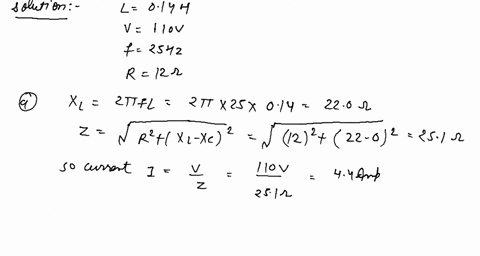 Solution:- L = 0.14 H
V = 110V
f = 25Hz
R = 12Ω
a) XL = 2πfL = 2π × 25 × 0.14 = 22.0 Ω
Z = √(R²+(XL-XC)²) = √((12)²+(22-0)²) = 25.1 Ω
so current I = V/Z = 110V/25.1Ω = 4.4 Amp